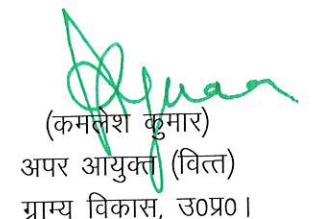 (कमलेश कुमार)
अपर आयुक्त (वित्त)
ग्राम्य विकास, उ0प्र0।